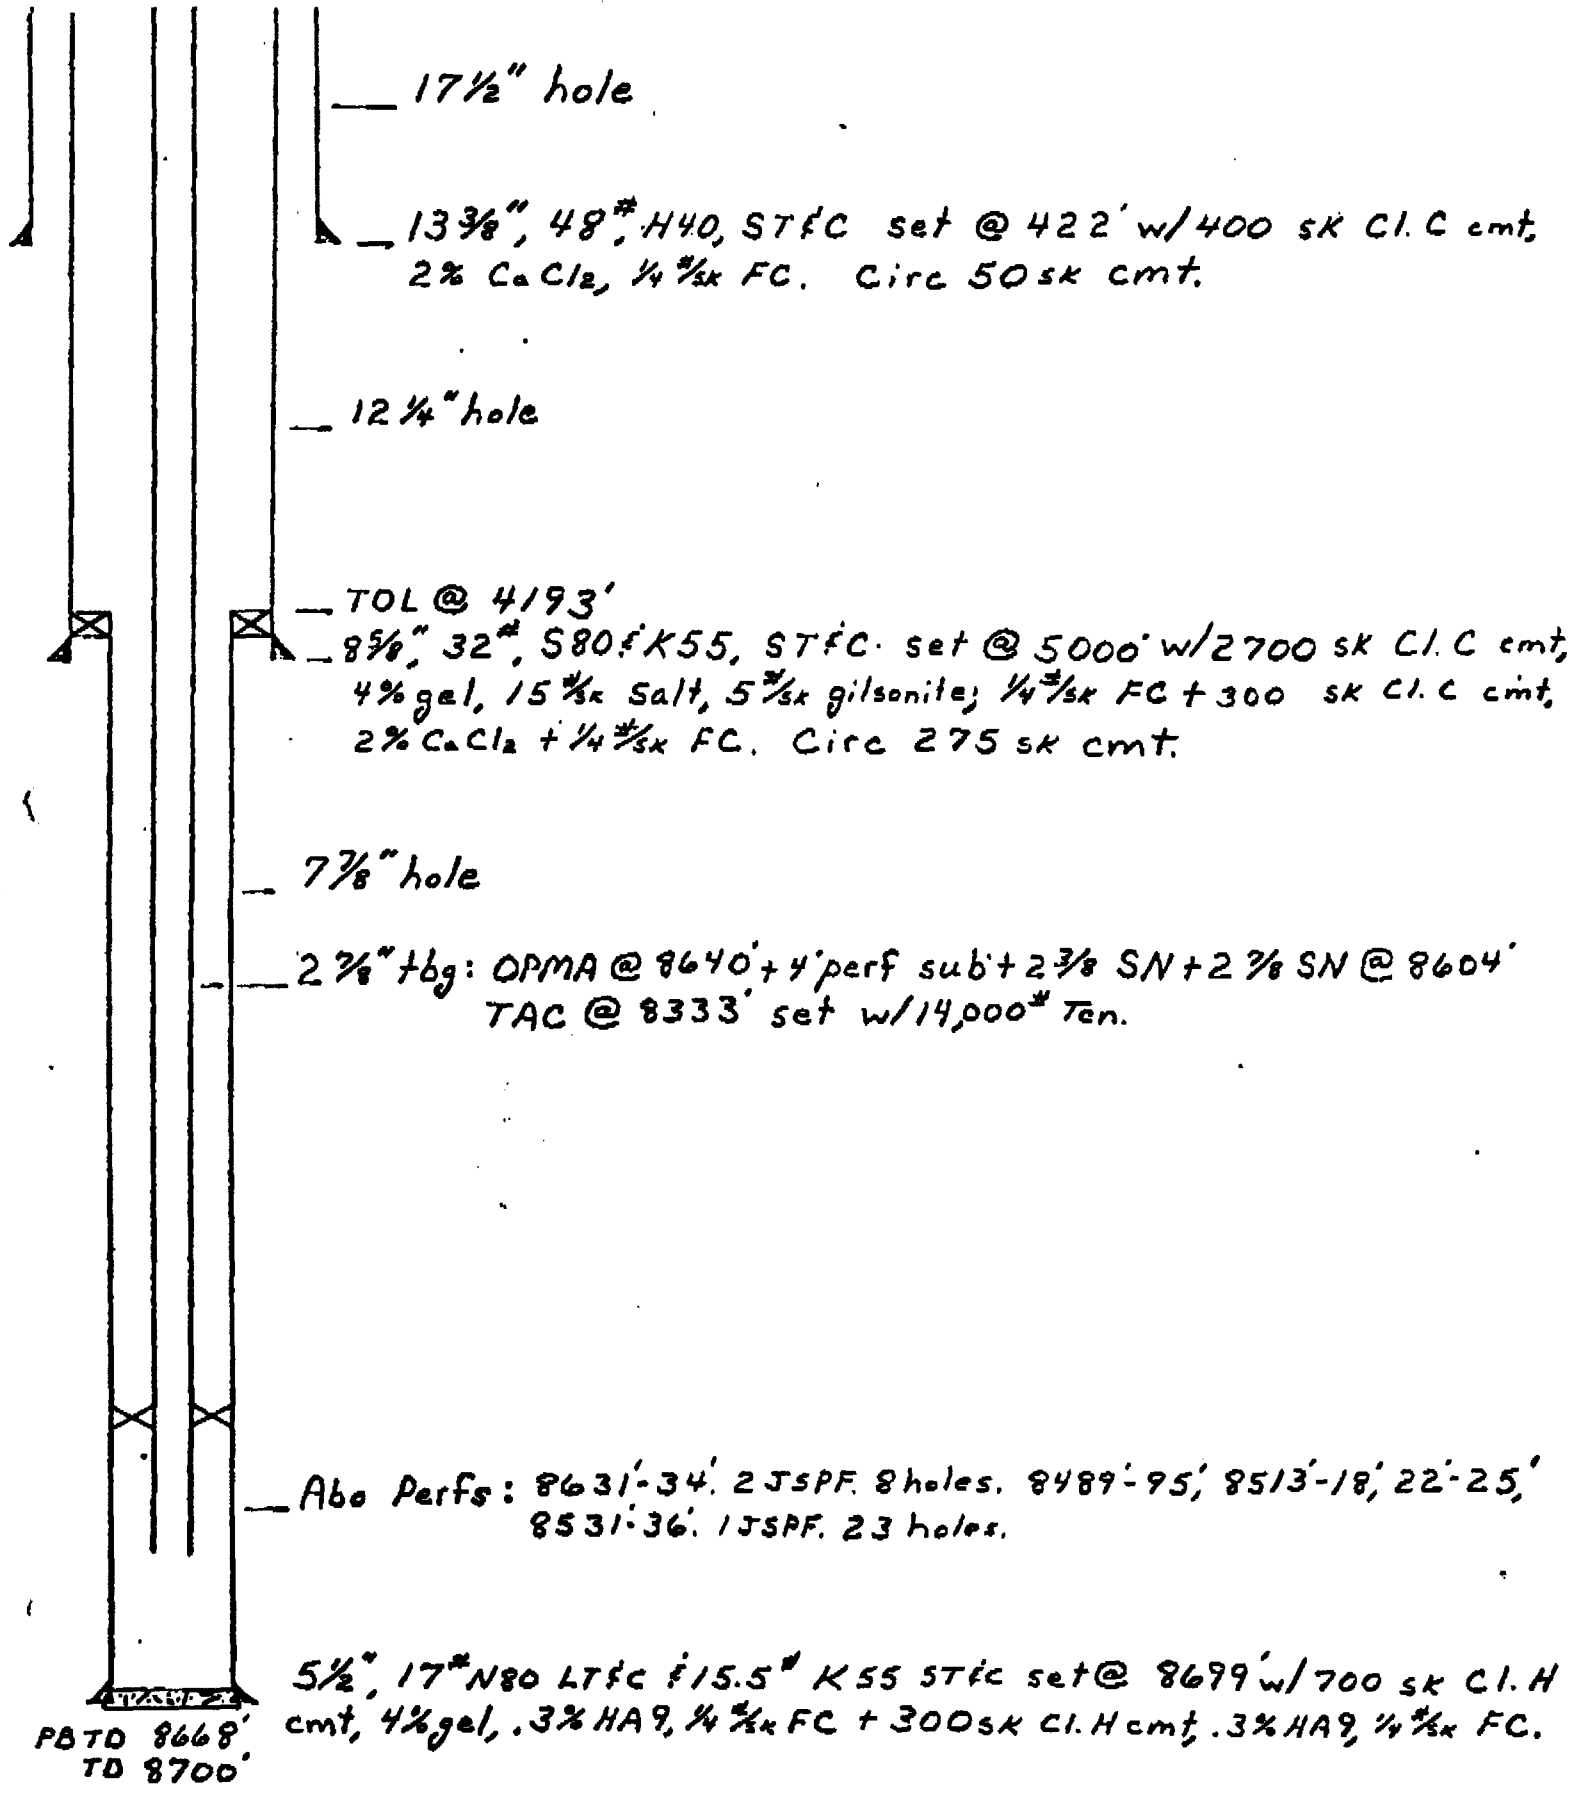 17½" hole
13⅜", 48#, H40, ST&C set @ 422' w/400 sk Cl. C cmt,
2% CaCl2, ¼ #/sk FC. Circ 50 sk cmt.
12¼" hole
TOL @ 4193'
8⅝", 32#, S80 & K55, ST&C. set @ 5000' w/2700 sk Cl. C cmt,
4% gel, 15 #/sk Salt, 5 #/sk gilsonite, ¼ #/sk FC + 300 sk Cl. C cmt,
2% CaCl2 + ¼ #/sk FC. Circ 275 sk cmt.
7⅞" hole
2⅞" tbg: OPMA @ 8640' + 4' perf sub + 2⅜ SN + 2⅞ SN @ 8604'
TAC @ 8333' set w/14,000# Ten.
Abo Perfs: 8631'-34'. 2 JSPF. 8 holes. 8489'-95', 8513'-18', 22'-25,'
8531'-36'. 1 JSPF. 23 holes.
5½", 17# N80 LT&C & 15.5# K55 ST&C set @ 8699' w/700 sk Cl. H
cmt, 4% gel, .3% HA9, ¼ #/sk FC + 300 sk Cl. H cmt, .3% HA9, ¼ #/sk FC.
PBTD 8668'
TD 8700'